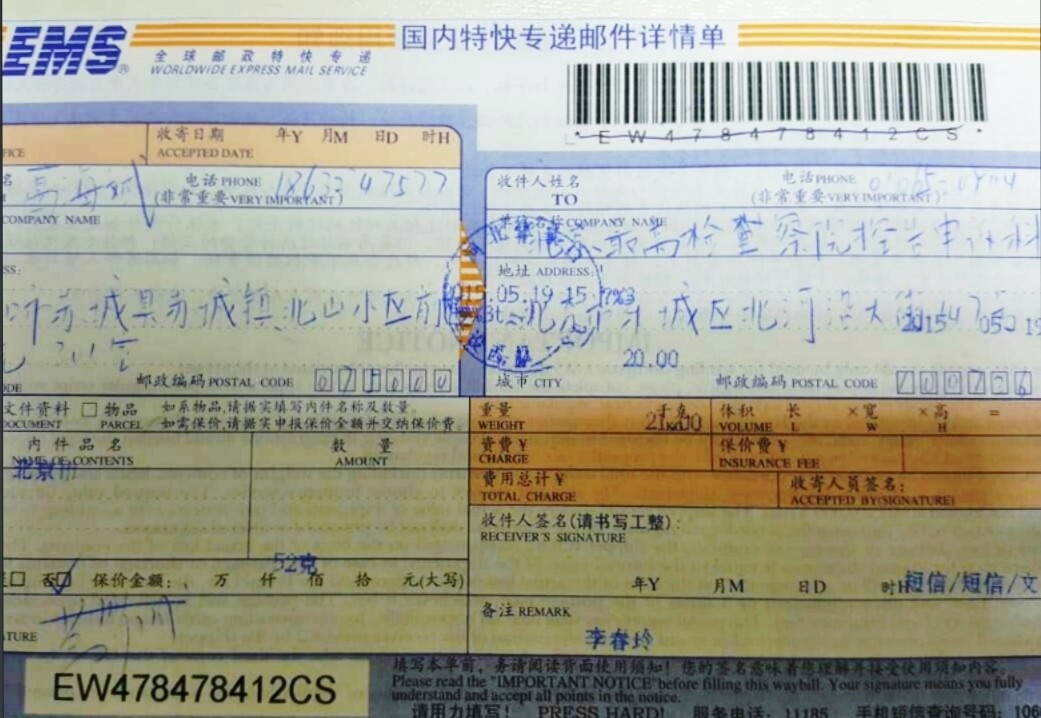 EMS® 国内特快专递邮件详情单
全球邮政特快专递
WORLDWIDE EXPRESS MAIL SERVICE
*EW478478412CS*
收寄日期 年Y 月M 日D 时H
ACCEPTED DATE
电话PHONE 18633347577
(非常重要VERY IMPORTANT)
收件人姓名 电话PHONE
TO (非常重要VERY IMPORTANT)
COMPANY NAME
单位名称COMPANY NAME 最高检查察院控告申诉科
地址 ADDRESS:
05.19 15
城县 城镇北山小区前
北京市东城区北河沿大街147
20.00
邮政编码POSTAL CODE 075000
城市 CITY 邮政编码POSTAL CODE 100726
文件资料 □ 物品 如系物品,请据实填写内件名称及数量。
DOCUMENT PARCEL 如需保价,请据实申报保价金额并交纳保价费。
重量 千克 体积 长 ×宽 ×高 =
WEIGHT VOLUME L W H
内件品名 数量
NAME OF CONTENTS AMOUNT
资费¥ 保价费¥
CHARGE INSURANCE FEE
北京市
费用总计¥ 收寄人员签名:
TOTAL CHARGE ACCEPTED BY(SIGNATURE)
收件人签名(请书写工整):
RECEIVER'S SIGNATURE
52克
□ 否☑ 保价金额: 万 仟 佰 拾 元(大写)
年Y 月M 日D 时H 短信/短信/文
备注 REMARK
李春玲
EW478478412CS
填写本单前,务请阅读背面使用须知!您的签名意味着您理解并接受使用须知内容。
Please read the "IMPORTANT NOTICE" before filling this waybill. Your signature means you fully
understand and accept all points in the notice.
请用力填写! PRESS HARD! 服务电话:11185 手机短信查询号码:106